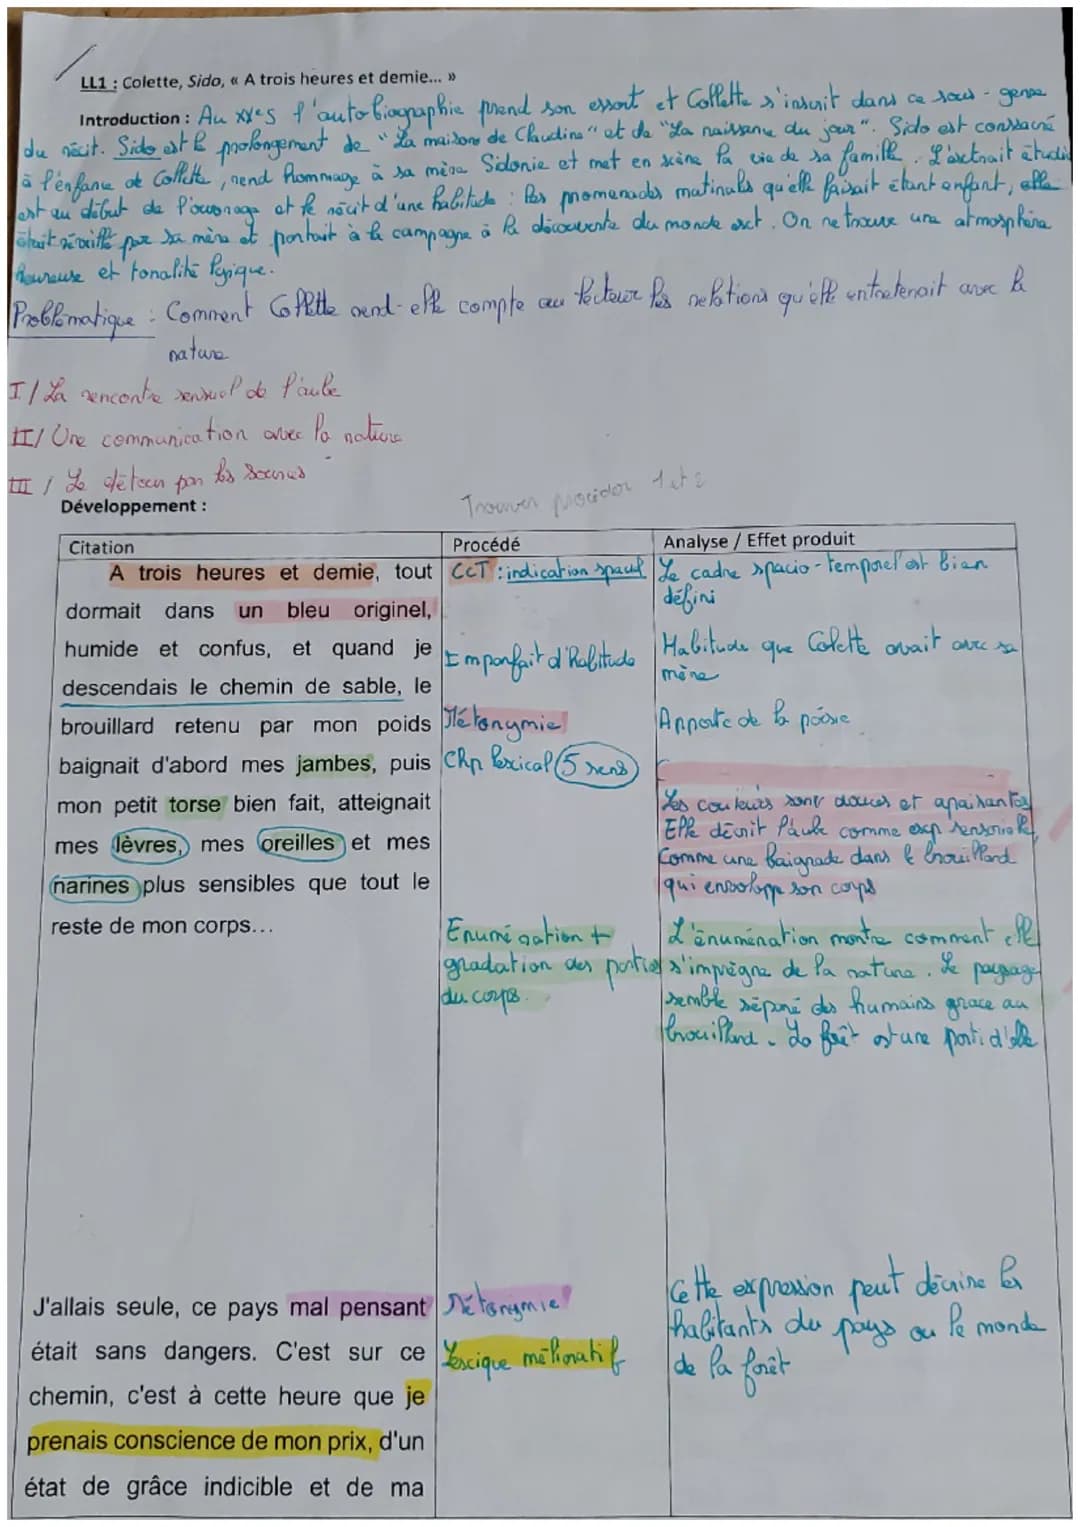 LL1 : Colette, Sido, « A trois heures et demie... »
Introduction : Au XXe s l'autobiographie prend son essort et Collette s'inscrit dans ce sous-genre
du récit. Sido est le prolongement de "La maison de Claudine" et de "La naissance du jour". Sido est conssacré
à l'enfance de Collette, rend hommage à sa mère Sidonie et met en scène la vie de sa famille. L'extrait étudié
est au début de l'ouvrage et le récit d'une habitude : les promenades matinales qu'elle faisait étant enfant, elle
était réveillé par sa mère et partait à la campagne à la découverte du monde ext. On retrouve une atmosphère
heureuse et tonalité lyrique.
Problématique : Comment Collette rend-elle compte au lecteur les relations qu'elle entretenait avec la
nature
I / La rencontre sensuel de l'aube
II / Une communication avec la nature
III / Le détour par les sources
Trouver procéder 1 et 2
Développement :
Citation Procédé Analyse / Effet produit
A trois heures et demie, tout CCT : indication spacial Le cadre spacio-temporel est bien
défini
dormait dans un bleu originel,
humide et confus, et quand je Imparfait d'habitude Habitude que Colette avait avec sa
mère
descendais le chemin de sable, le
brouillard retenu par mon poids Métonymie Apporte de la poésie
baignait d'abord mes jambes, puis Chp lexical (5 sens)
mon petit torse bien fait, atteignait Les couleurs sont douces et apaisantes
mes lèvres, mes oreilles et mes Elle décrit l'aube comme exp sensorielle,
narines plus sensibles que tout le comme une baignade dans le brouillard
reste de mon corps... qui envelopp son corps
Enumération + L'énumération montre comment elle
gradation des parties s'imprègne de la nature. Le paysage
du corps. semble séparé des humains grace au
brouillard. La forêt est une parti d'elle
J'allais seule, ce pays mal pensant Métonymie Cette expression peut décrire les
habitants du pays ou le monde
était sans dangers. C'est sur ce Lexique mélioratif de la forêt
chemin, c'est à cette heure que je
prenais conscience de mon prix, d'un
état de grâce indicible et de ma